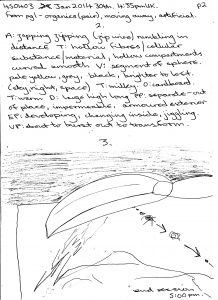 WS0403 Jan 2014 30th. 4:35pm UK. P2
From pg1 - organics (pair), moving away, artificial.
2.
A: zapping zapping (zip wire) rambling in
distance T: hollow fibres/cellular
substance/material, hollow compartments
curved smooth V: segment of sphere.
pale yellow, grey, black, brighter to left.
(sky, night, space) T: milky O: cardboard
T: warm D: large high long FF: separate-out
of place, impermeable, armoured exterior
EF: developing, changing inside, jiggling.
VF: about to burst out to transform.
3.
end session
5:00pm